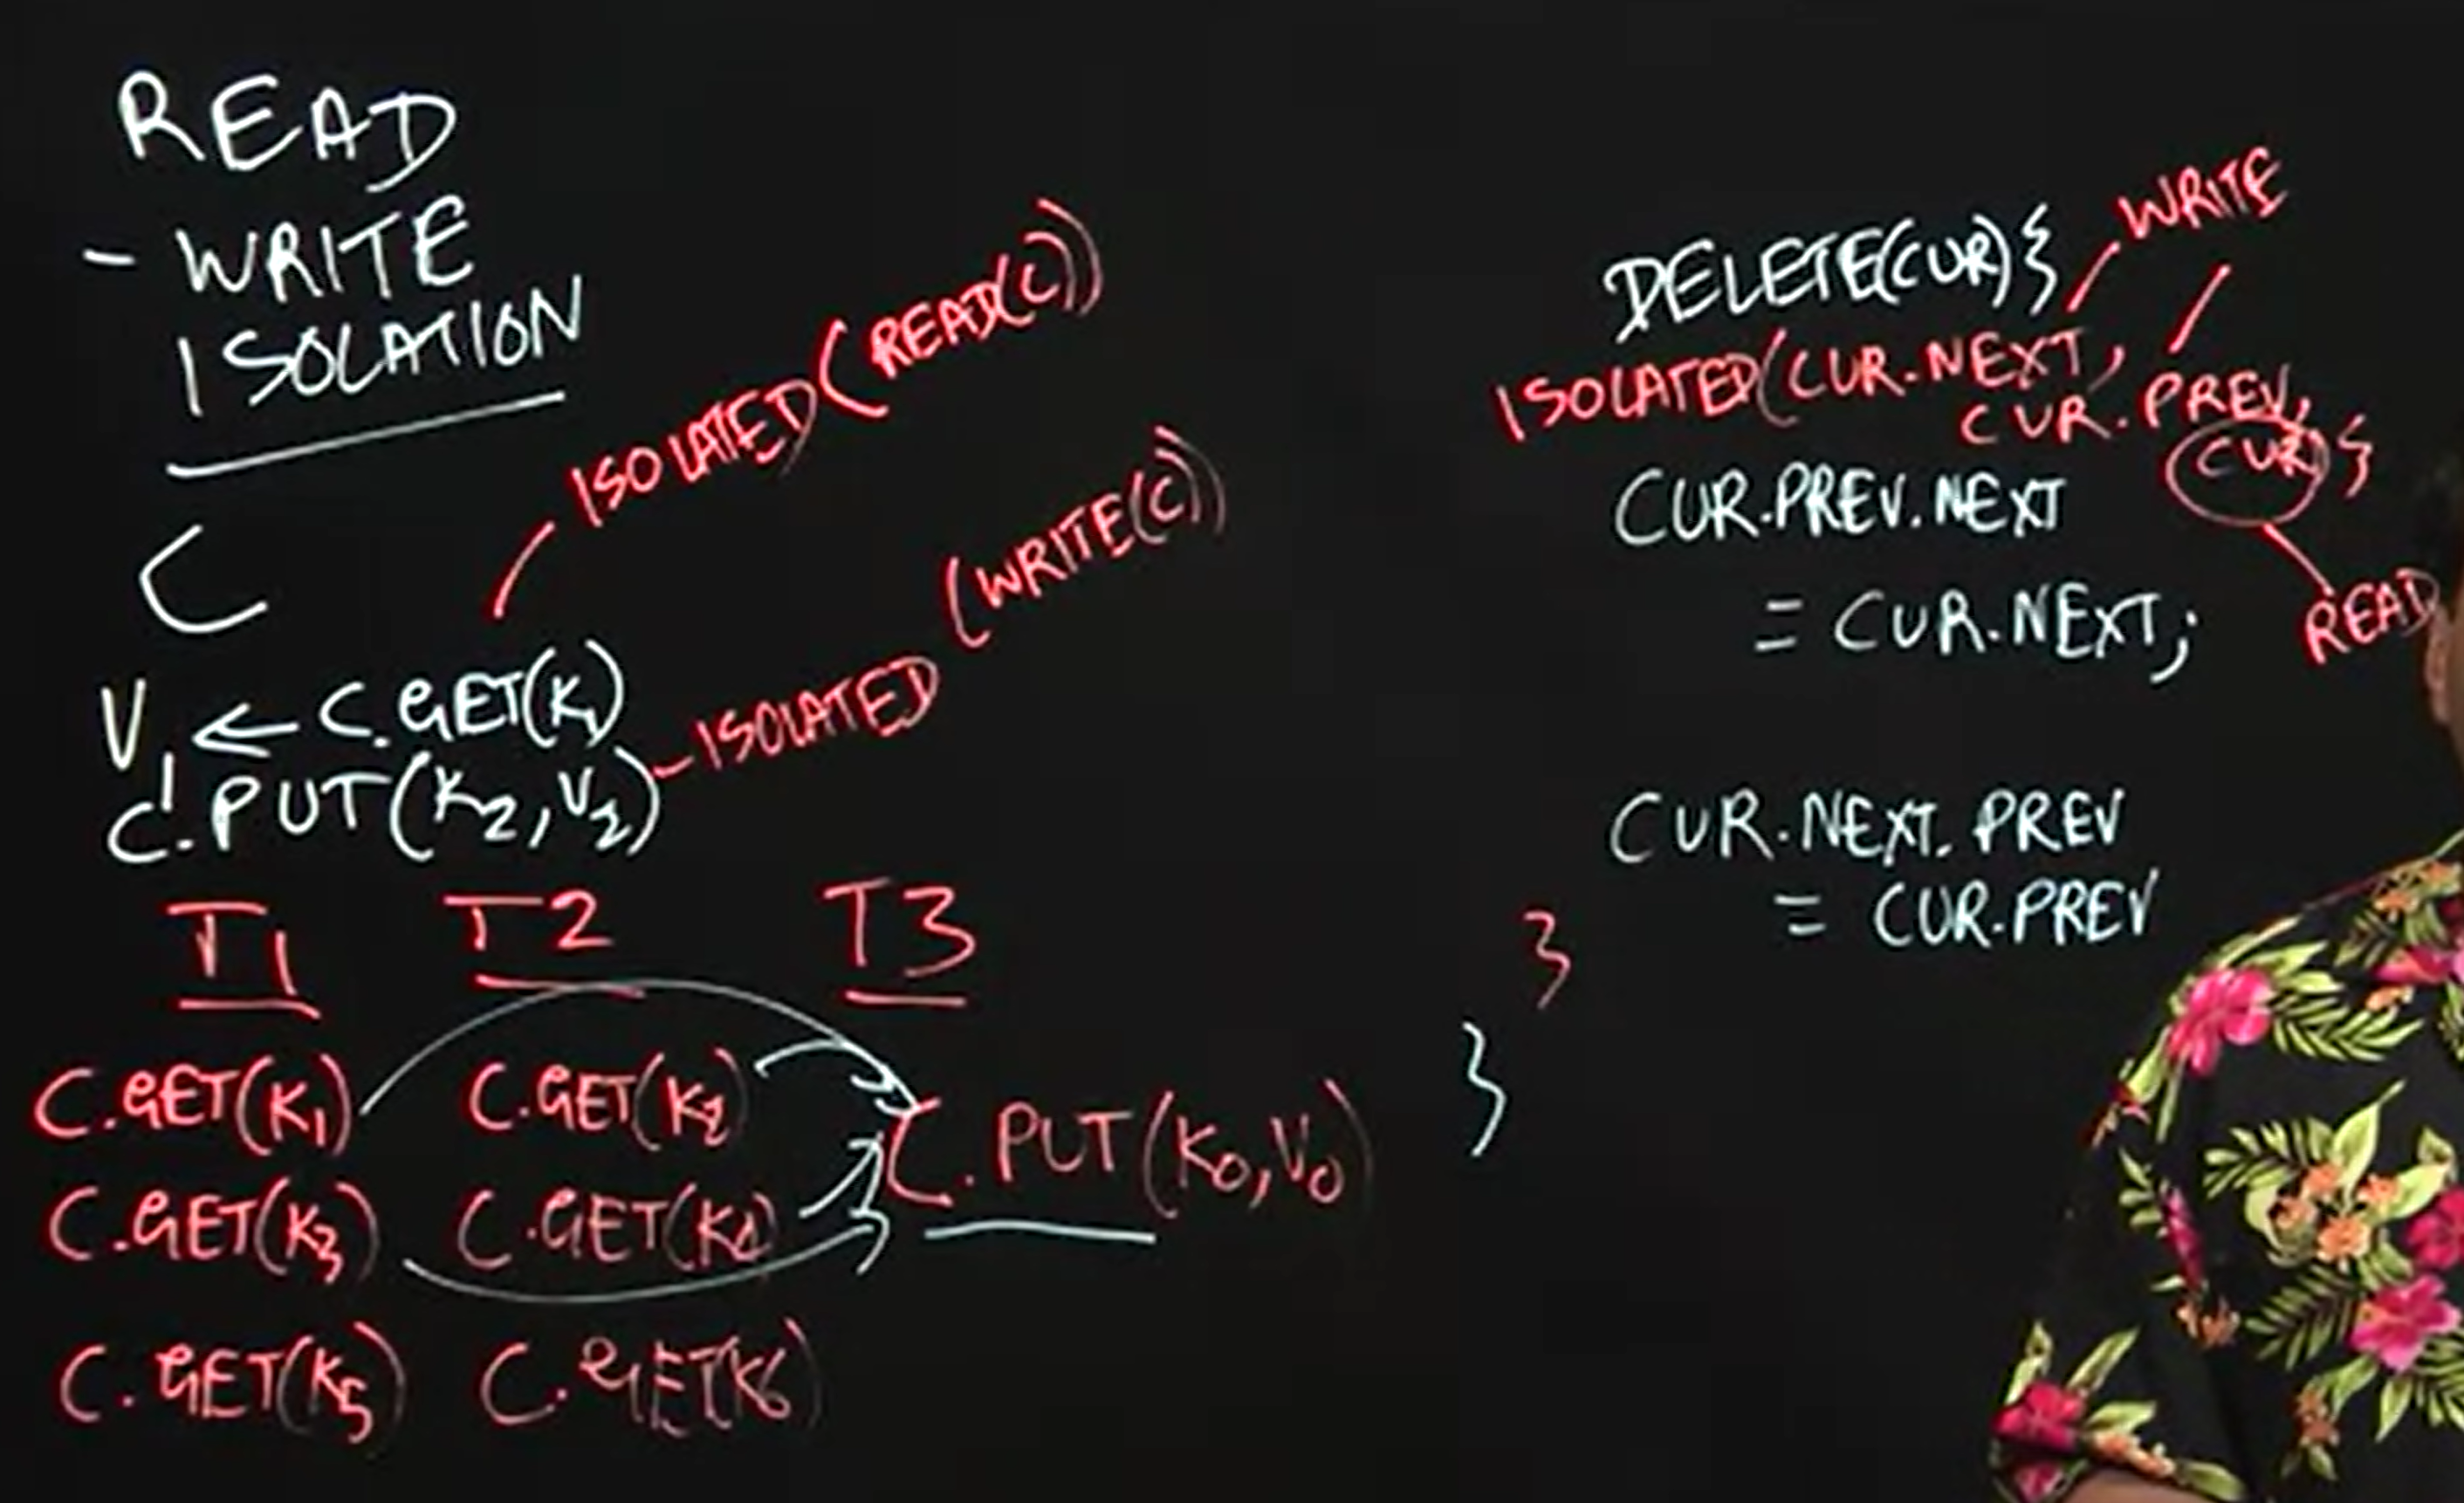 READ
- WRITE
ISOLATION
C
ISOLATED(READ(C))
V1 ← C.GET(K1)
C.PUT(K2, V2) - ISOLATED (WRITE(C))
T1 T2 T3
C.GET(K1) C.GET(K2)
C.PUT(K0, V0)
C.GET(K3) C.GET(K4)
C.GET(K5) C.GET(K6)
WRITE
DELETE(CUR){
ISOLATED(CUR.NEXT,
CUR.PREV,
CUR){
READ
CUR.PREV.NEXT
= CUR.NEXT;
CUR.NEXT.PREV
= CUR.PREV
}
}